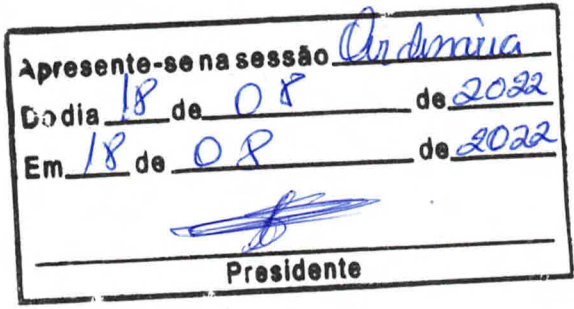 Apresente-se na sessão Ordinária
Do dia 18 de 08 de 2022
Em 18 de 08 de 2022
Presidente